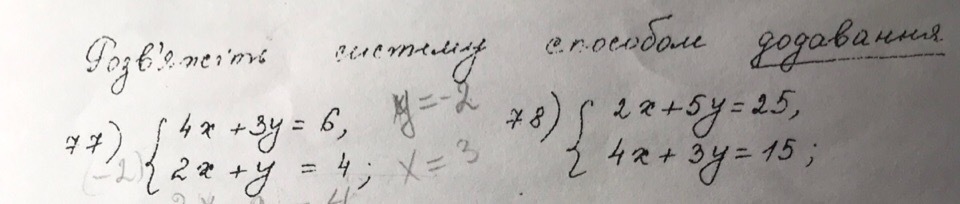 Розв'яжіть систему способом додавання
77) { 4x + 3y = 6, y = -2
(-2) 2x + y = 4; x = 3
78) { 2x + 5y = 25,
4x + 3y = 15;